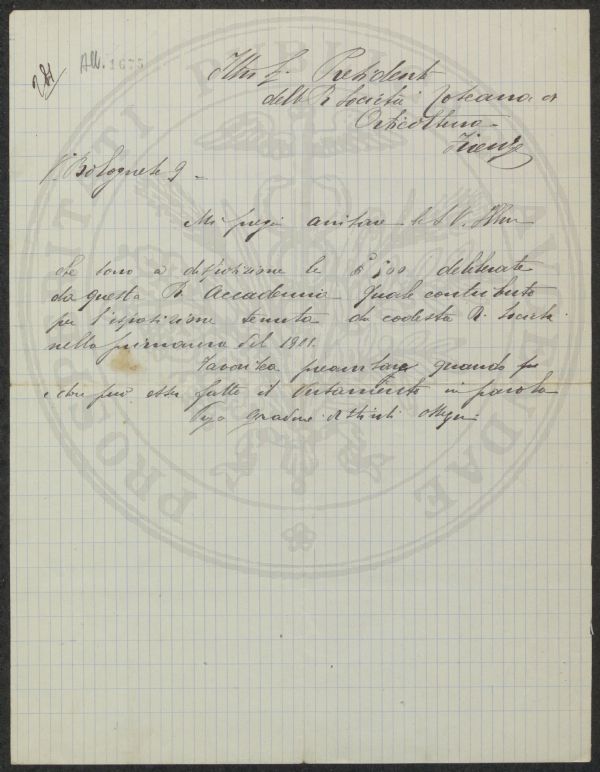 281
All. 1675
Illmo Sr. Presidente
della R. Società Toscana di
Orticoltura
Firenze
V. Bolognese 9 -
Mi pregio avvisare la S. V. Illma
che sono a disposizione le £ 500 deliberate
da questa R. Accademia quale contributo
per l'esposizione tenuta da codesta R. Società
nella primavera del 1911.
Favorisca preavvisare quando
può esser fatto il versamento in parola
distinti ossequi
PROSPERITATI PUBLICAE